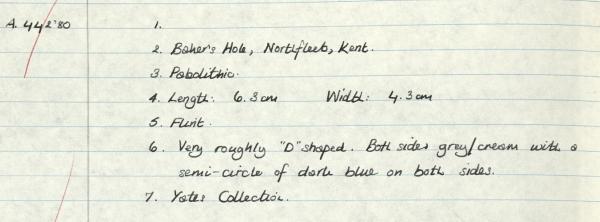 A. 442'80 1.
2. Baker's Hole, Northfleet, Kent.
3. Paleolithic.
4. Length: 6.3cm Width: 4.3cm
5. Flint.
6. Very roughly "D" shaped. Both sides grey/cream with a
semi-circle of dark blue on both sides.
7. Yates Collection.